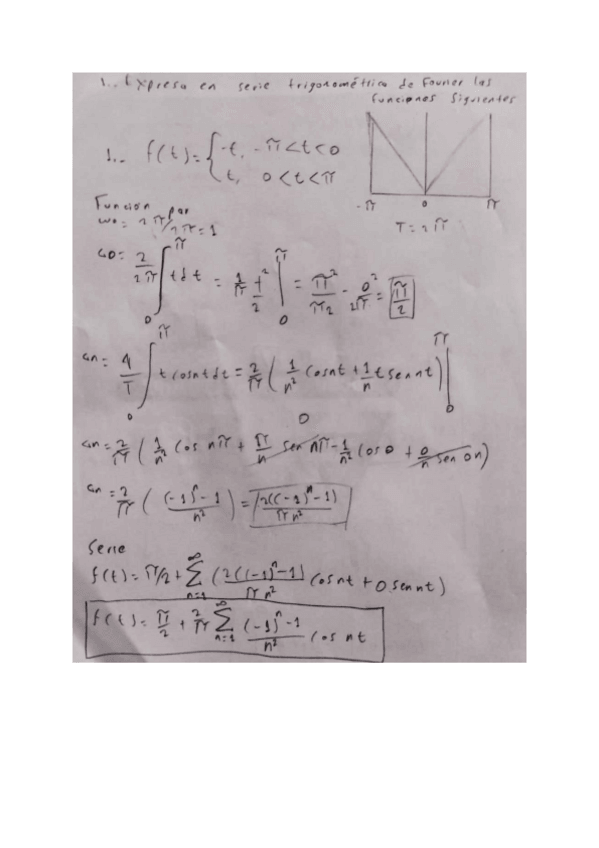 1.. Expresa en serie trigonométrica de Fourier las
funciones siguientes
1.- f(t)= { -t, -π<t<0
t, 0<t<π
-π 0 π
T=2π
Función par
wo= 2π/2π=1
a0= 2/2π ∫_0^π t dt = 1/π t²/2 |_0^π = π²/π2 - 0²/2π = π/2
an= 4/T ∫_0^π t cosnt dt = 2/π ( 1/n² cosnt + 1/n t sennt ) |_0^π
an= 2/π ( 1/n² cos nπ + π/n sen nπ - 1/n² cos 0 + 0/n sen 0n )
an= 2/π ( (-1)^n - 1 / n² ) = 2((-1)^n - 1) / πn²
Serie
f(t)= π/2 + ∑_{n=1}^∞ ( 2((-1)^n - 1) / πn² cosnt + 0 sennt )
f(t)= π/2 + 2/π ∑_{n=1}^∞ (-1)^n - 1 / n² cos nt